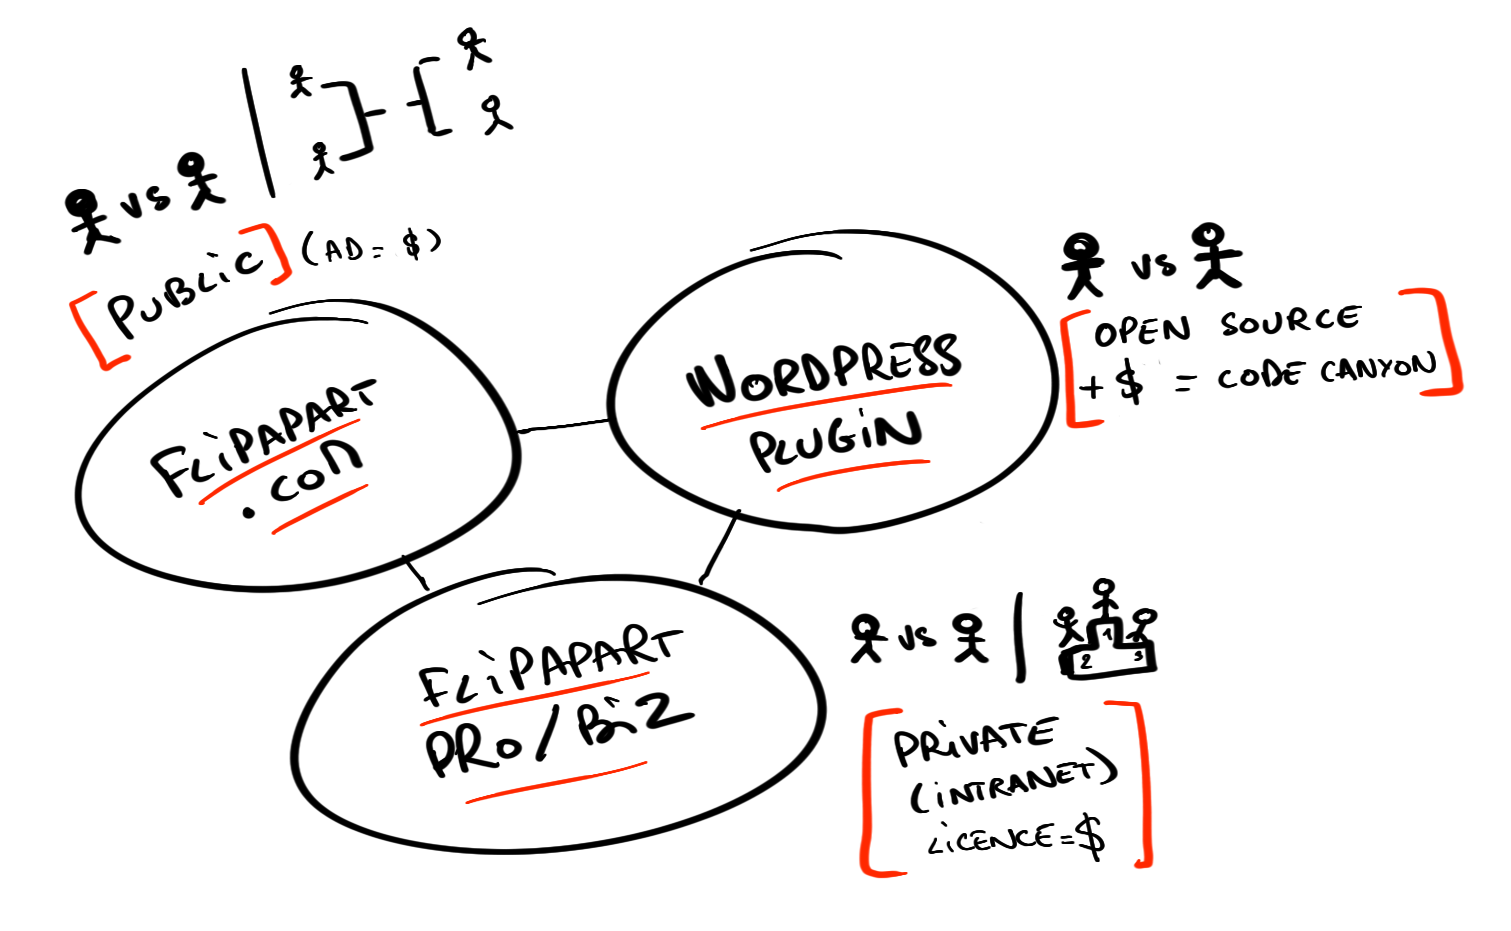 vs
[PUBLIC] (AD = $)
FLiPAPART
.COM
WORDPRESS
PLUGiN
vs
[OPEN SOURCE
+ $ = CODE CANYON]
FLiPAPART
PRO/BiZ
vs
1
2 3
[PRiVATE
(iNTRANET)
LiCENCE = $]